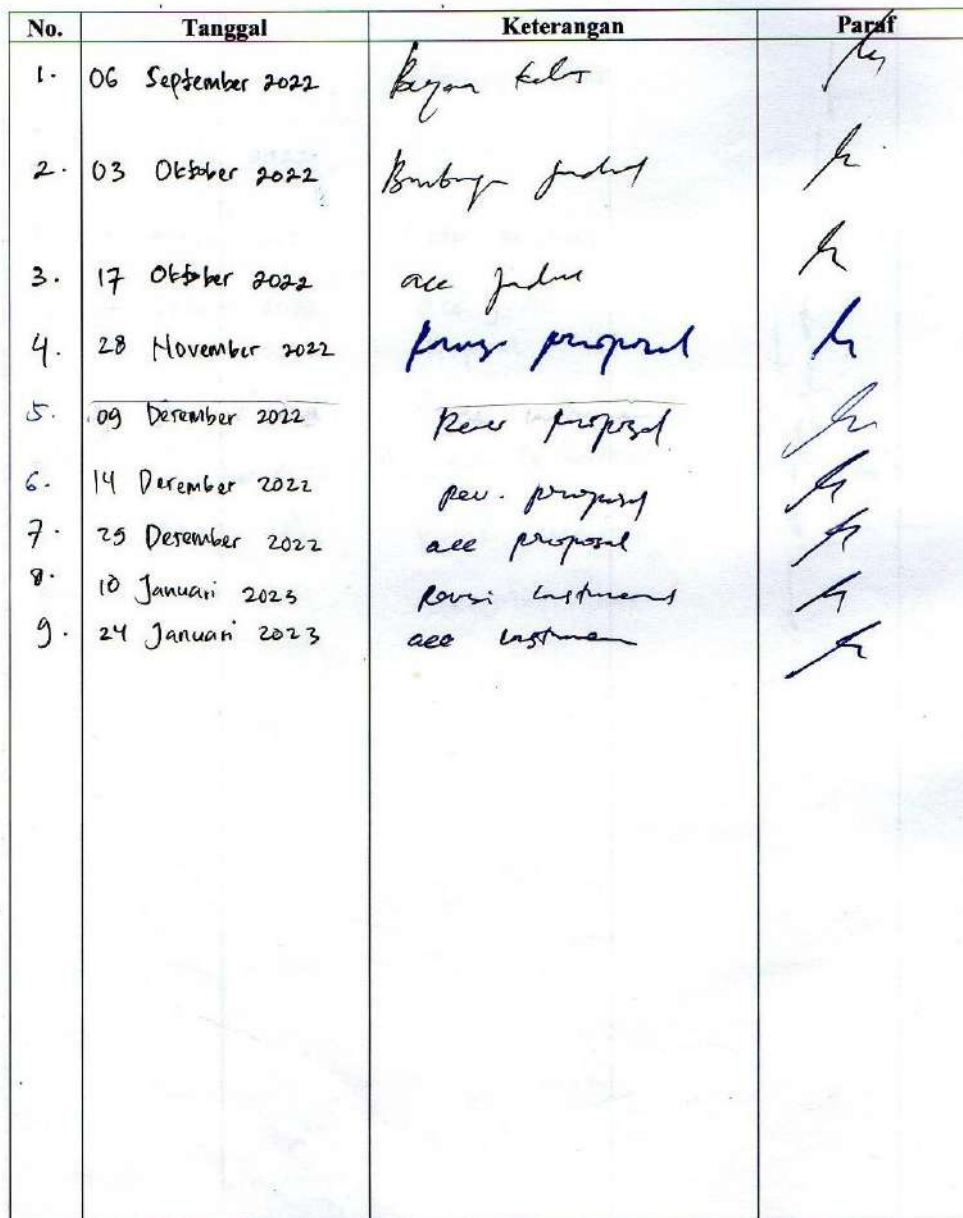 No. Tanggal Keterangan Paraf
1. 06 September 2022
2. 03 Oktober 2022
3. 17 Oktober 2022 acc Judul
4. 28 November 2022 proposal
5. 09 Desember 2022 proposal
6. 14 Desember 2022 rev. proposal
7. 25 Desember 2022 acc proposal
8. 10 Januari 2023 Revisi instrumen
9. 24 Januari 2023 acc instrumen